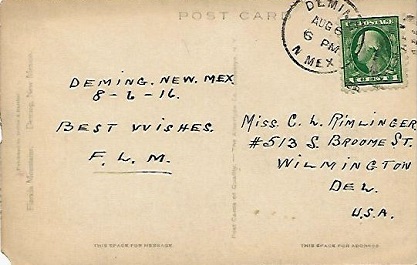 POST CARD
DEMING
AUG 6
6 PM
N. MEX.
DEMING. NEW. MEX
8-6-16.
BEST WISHES.
F. L. M.
MISS. C. L. RIMLINGER
#513 S. BROOME ST.
WILMINGTON
DEL.
U.S.A.
Florida Mountains, Deming, New Mexico.
THIS SPACE FOR MESSAGE.
THIS SPACE FOR ADDRESS.